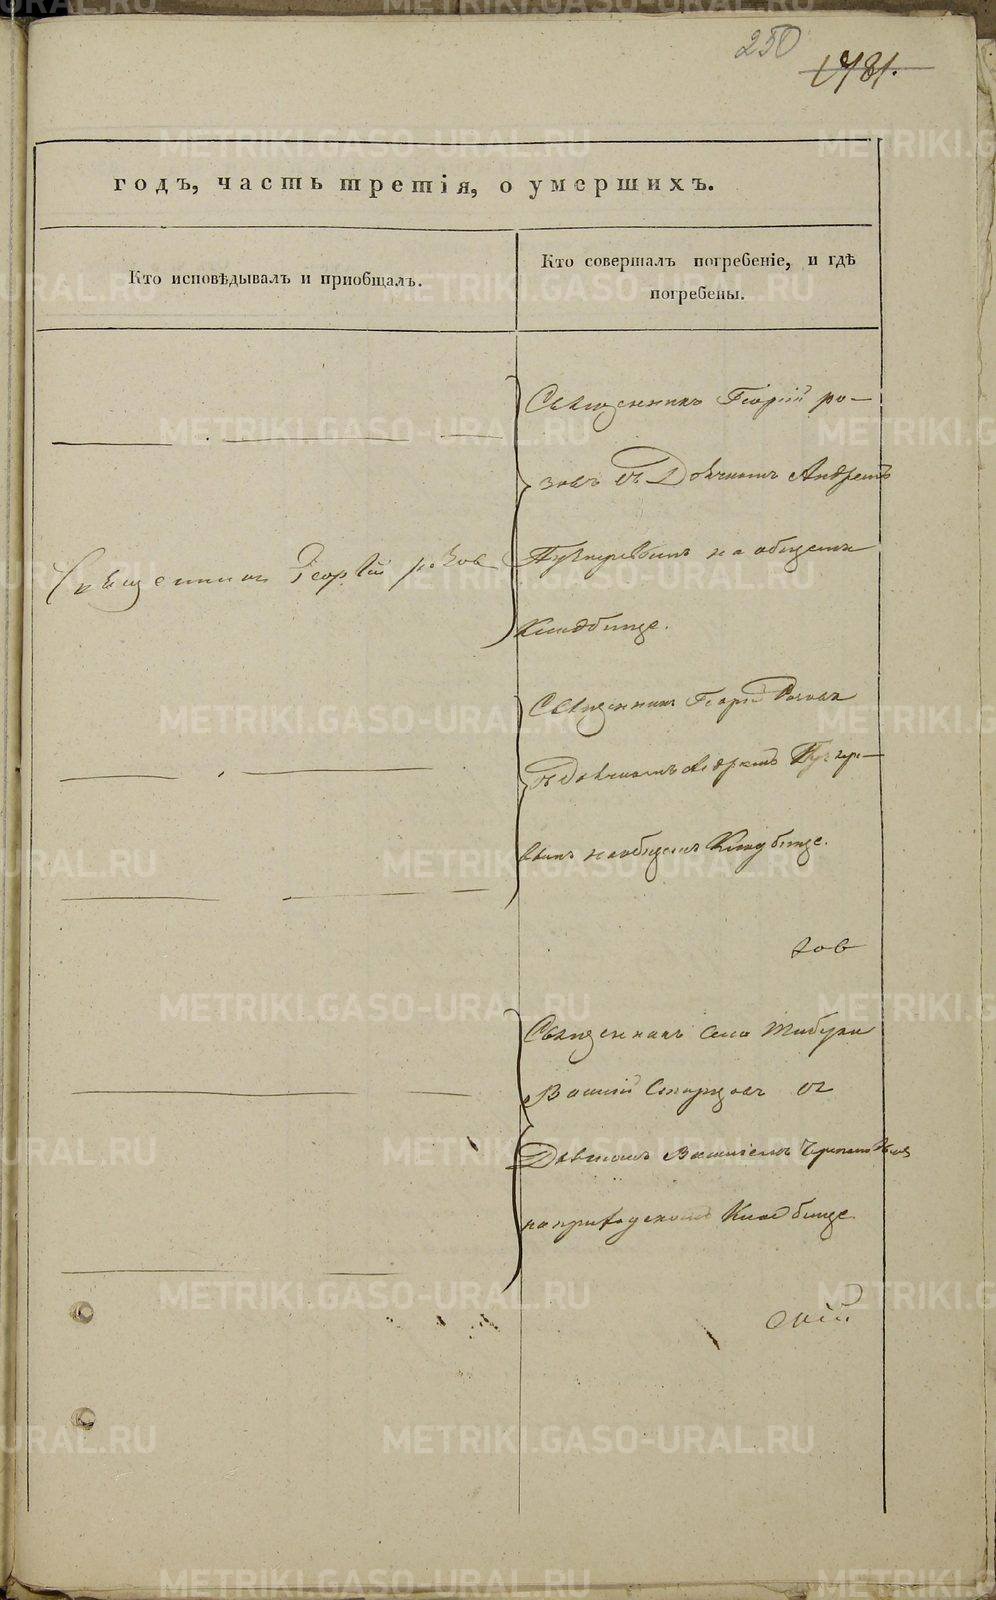 250
1781.
годъ, часть третія, о умершихъ.
Кто исповѣдывалъ и пріобщалъ.
Кто совершалъ погребеніе, и гдѣ
погребены.
Священникъ Георгій ро-
зовъ съ Дьячкомъ Андреемъ
на общемъ
Кладбище.
Священникъ Георгій розов
Священникъ Георгій Розовъ
съ Дьячкомъ Андреемъ
вымъ на общемъ Кладбище.
зов
Священникъ села
Василій съ
Дьячкомъ Василіемъ
на приходскомъ Кладбище
скій
METRIKI.GASO-URAL.RU